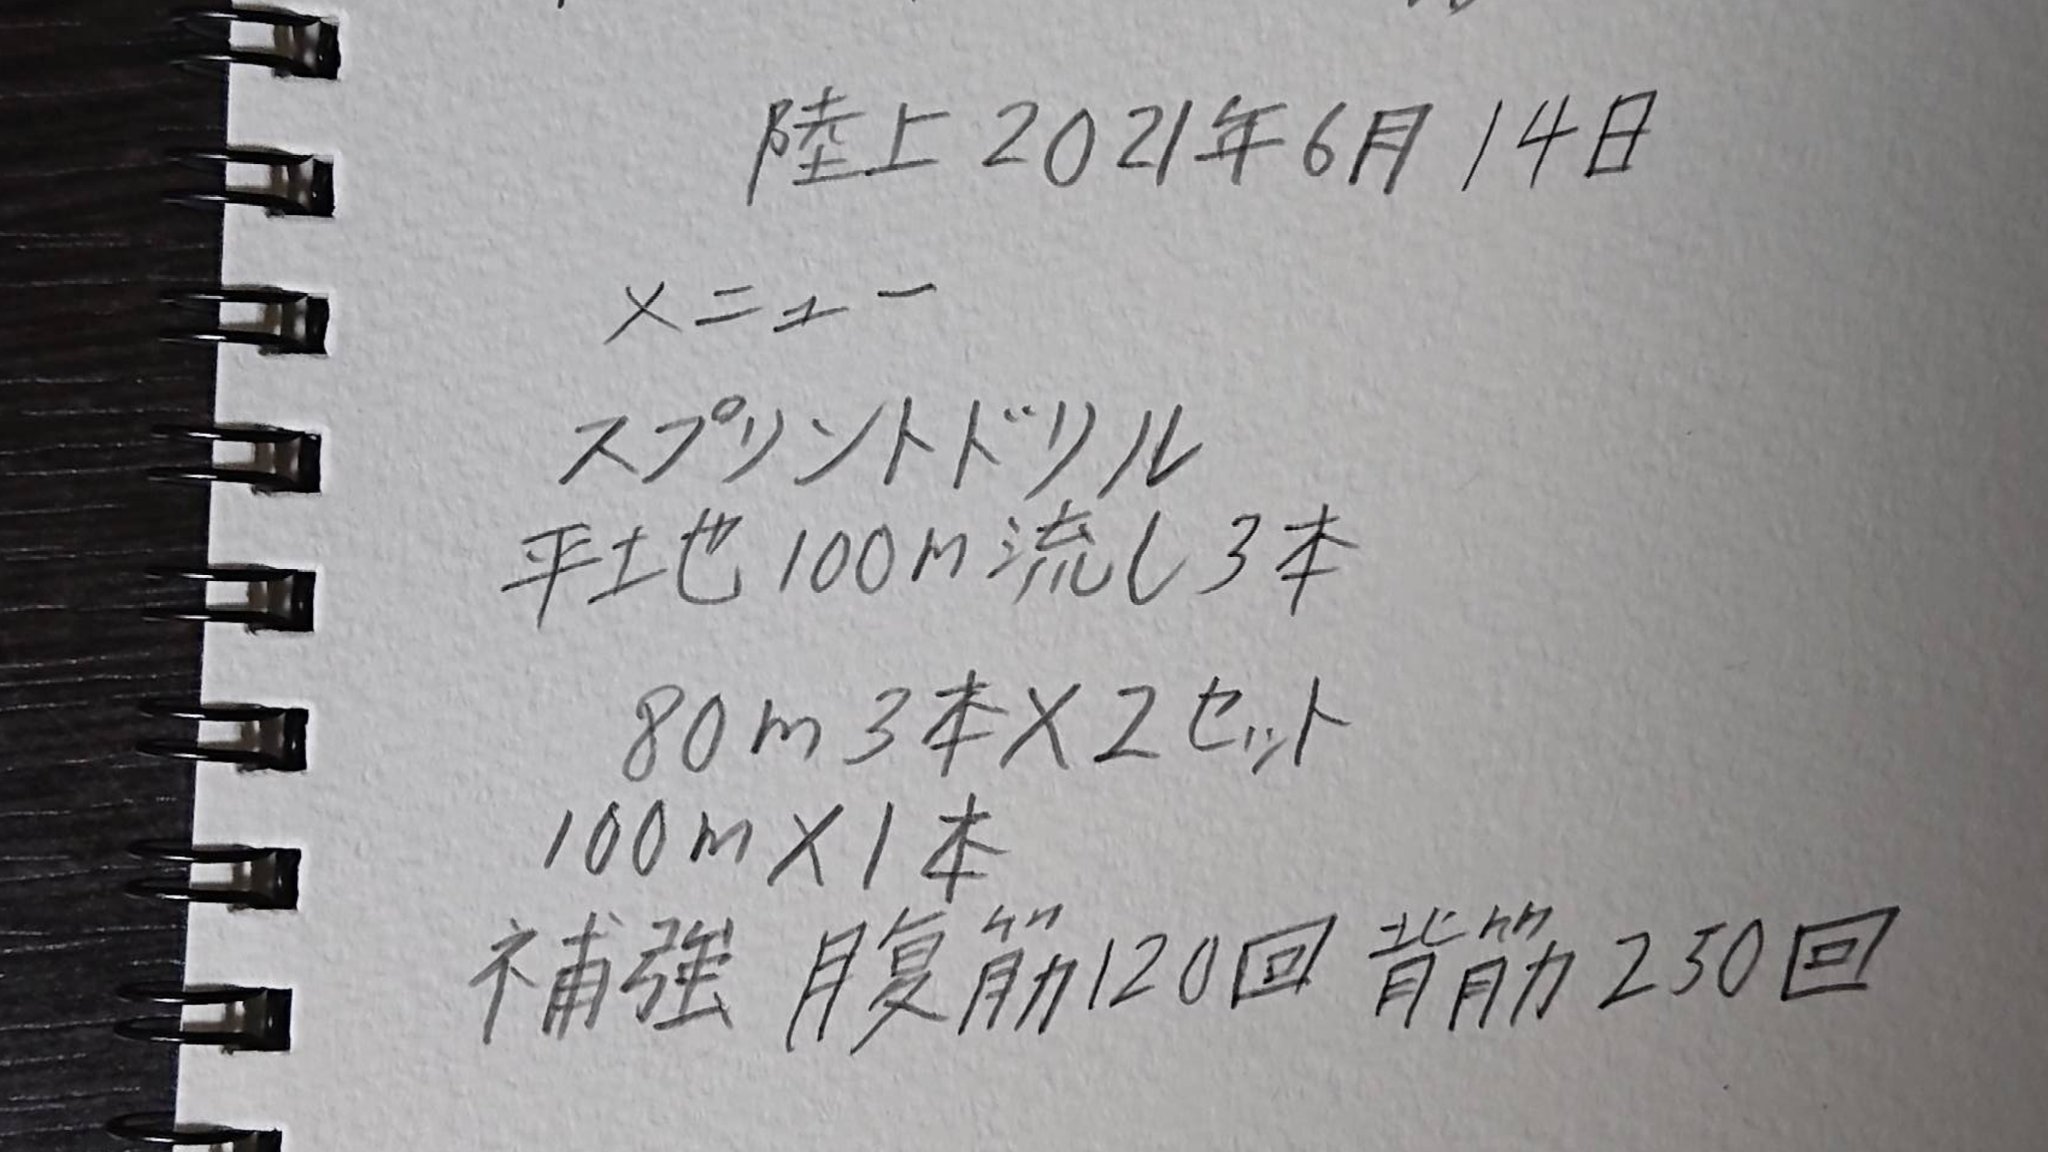 陸上2021年6月14日
メニュー
スプリントドリル
平地100m流し3本
80m3本×2セット
100m×1本
補強 腹筋120回 背筋250回